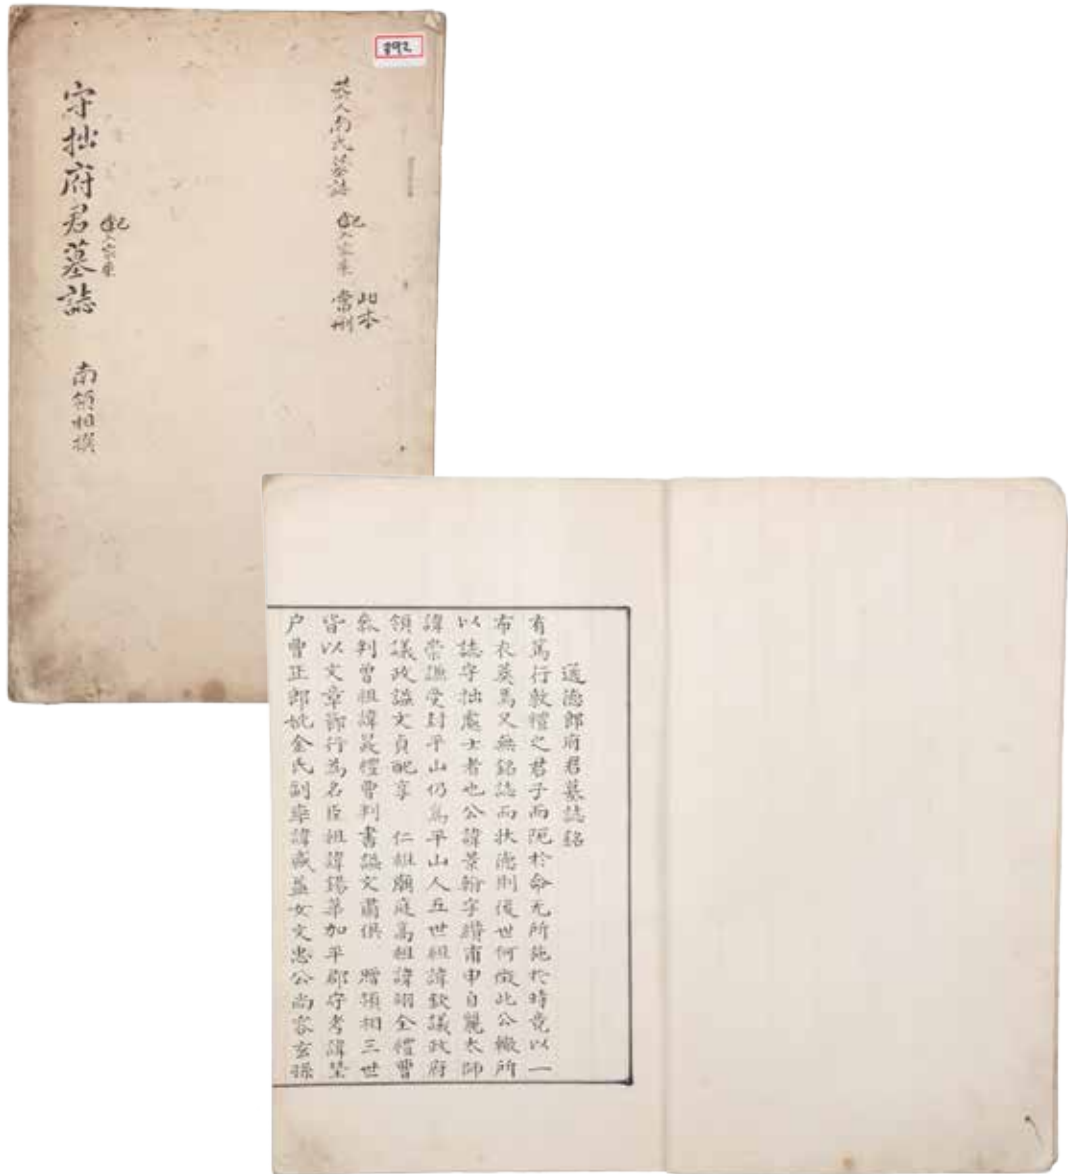 892
恭人南氏墓誌
已入家乘
此本
當刪
守拙府君墓誌
已入家乘
南領相撰
通德郞府君墓誌銘
有篤行敦禮之君子而阨於命无所施於時竟以一
布衣葬焉又無銘誌而狀德則後世何徵此公轍所
以誌守拙處士者也公諱景翰字纘甫申自麗太師
諱崇謙受封平山仍爲平山人五世祖諱欽議政府
領議政謚文貞配享 仁祖廟庭高祖諱翊全禮曹
叅判曾祖諱晸禮曹判書謚文肅俱 贈領相三世
皆以文章鄕行爲名臣祖諱錫華加平郡守考諱埅
户曹正郞妣金氏副率諱盛益女文忠公尙容玄孫